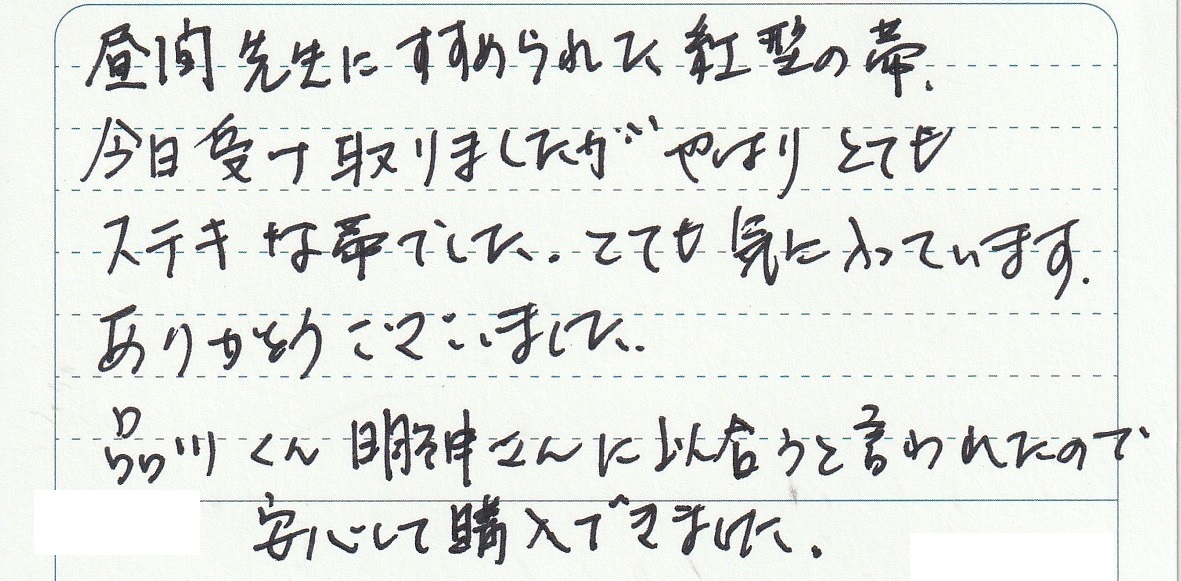 昼間先生にすすめられた紅型の帯.
今日受け取りましたがやはりとても
ステキな帯でした.とても気に入っています.
ありがとうございました.
品川くん明神さんに似合うと言われたので
安心して購入できました.